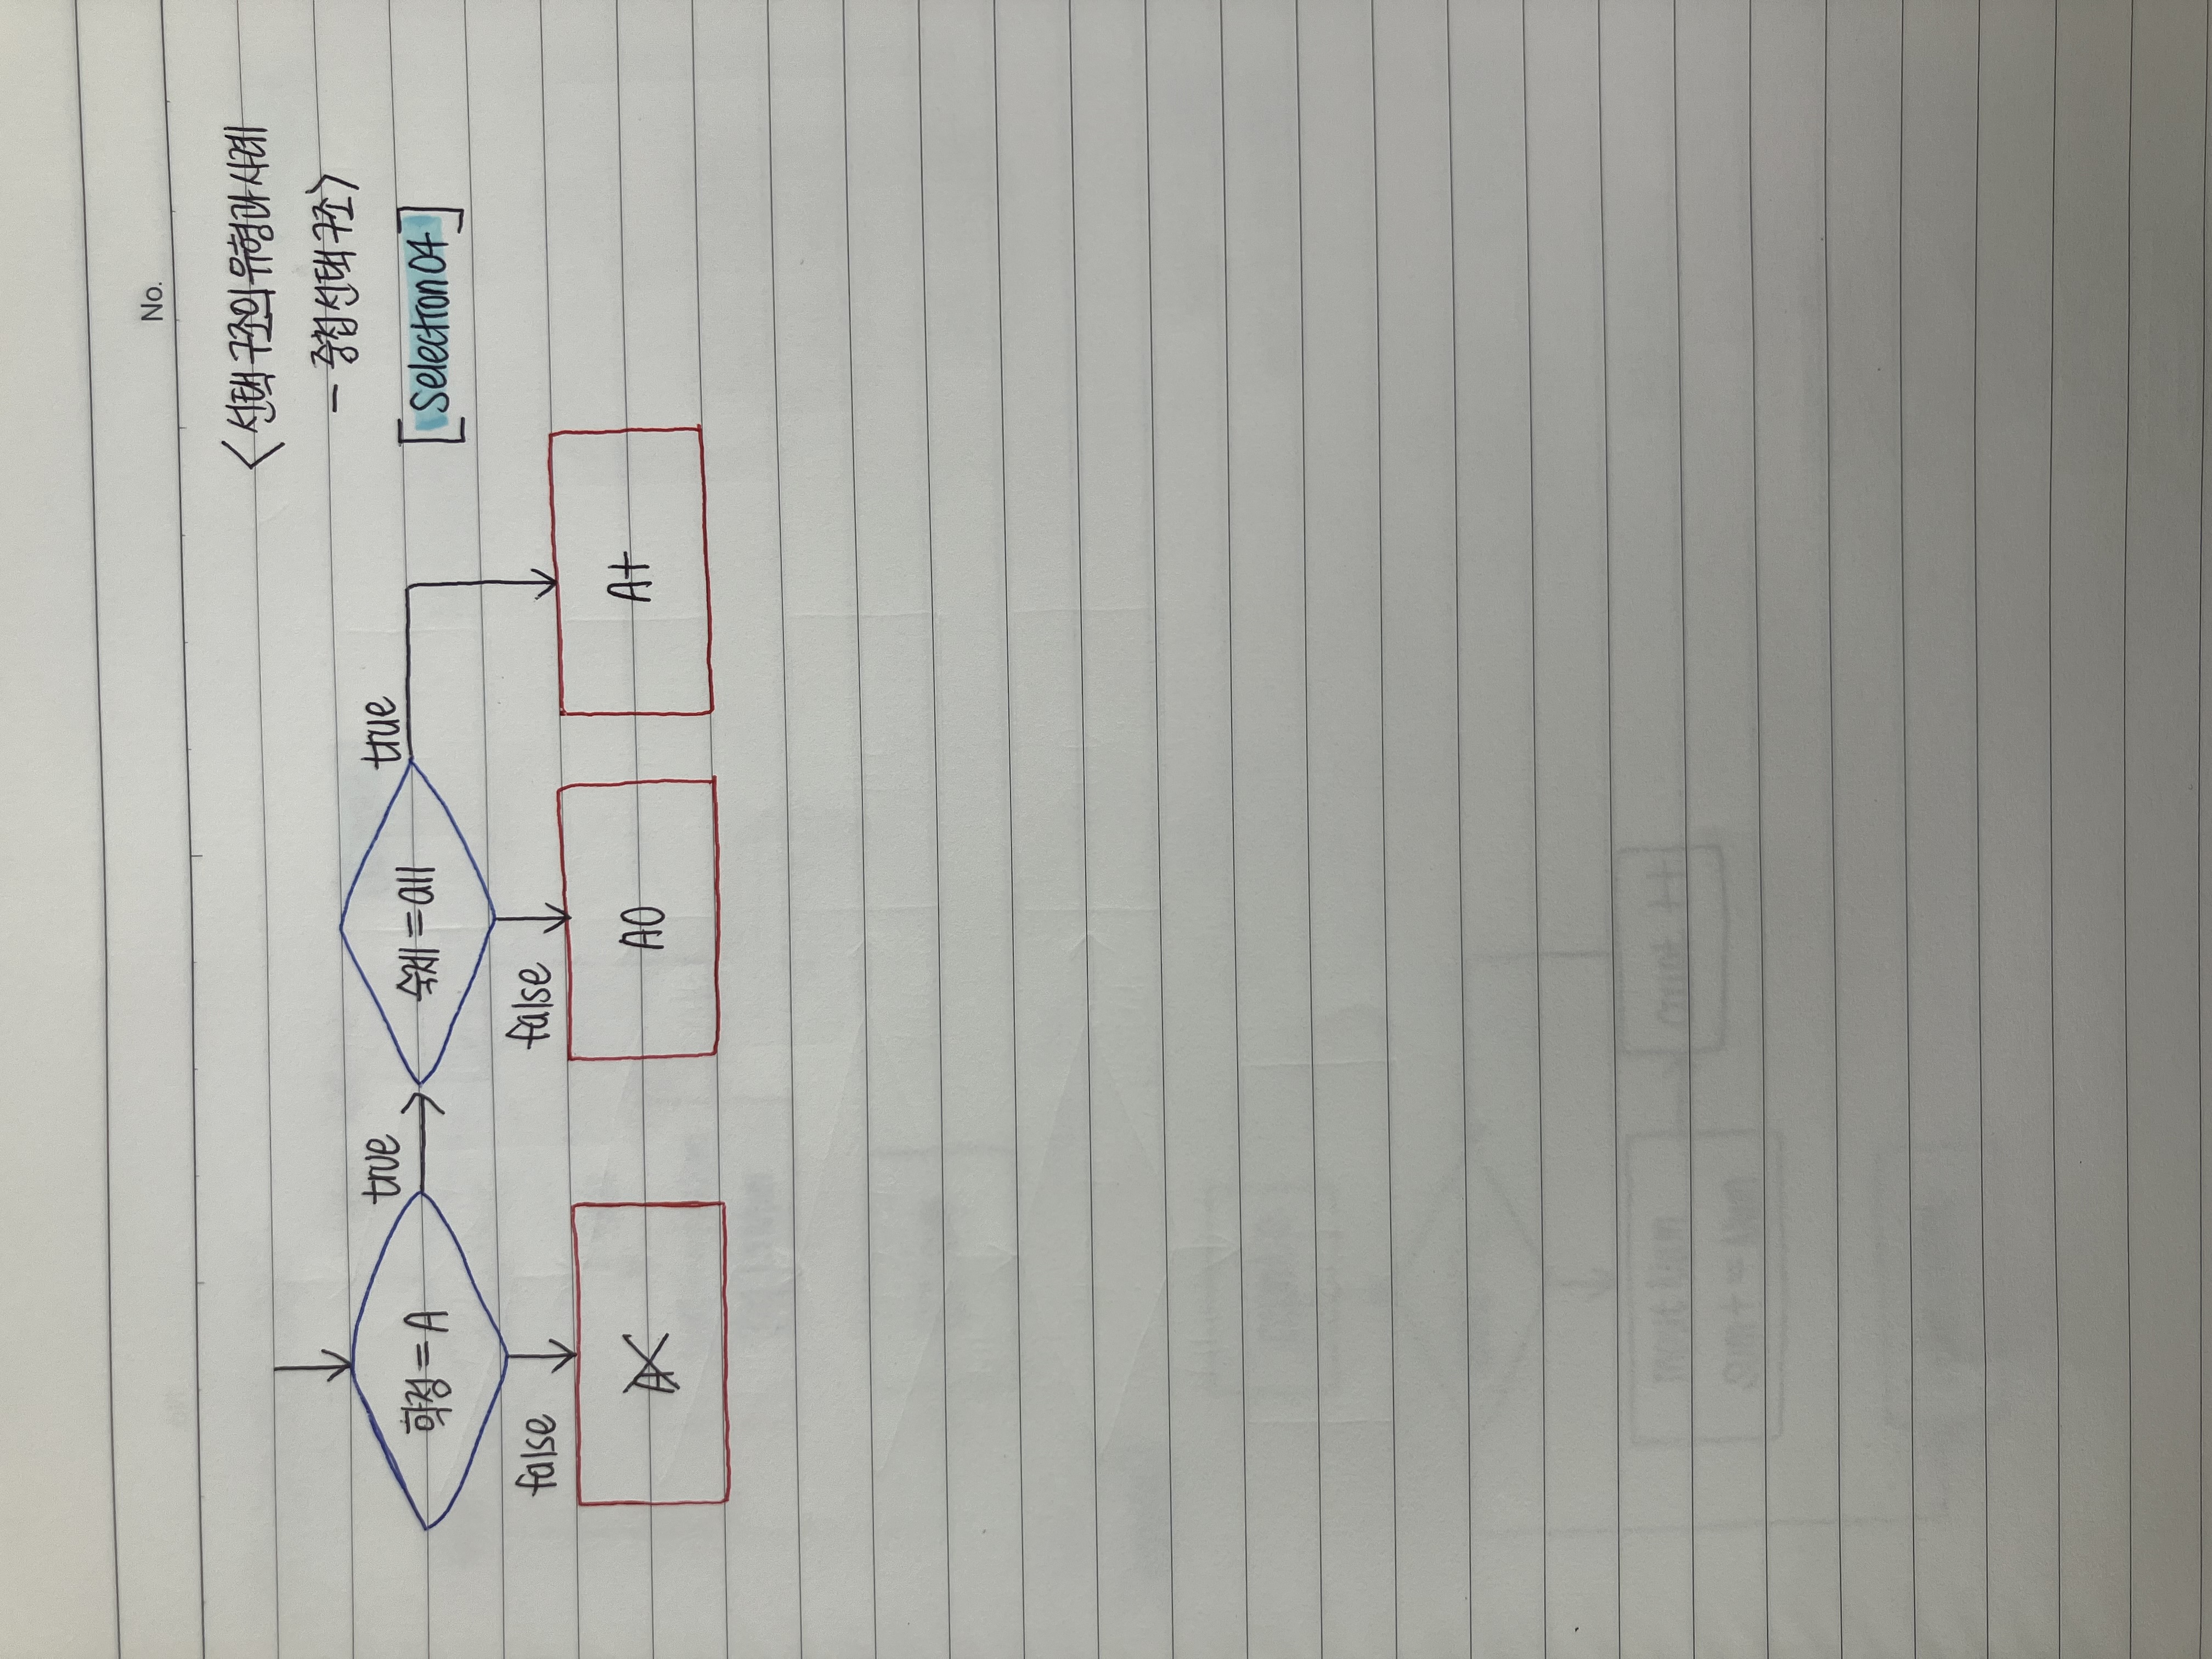 No.
< 선택 구조의 유형과 사례
- 중첩 선택 구조>
[Selection 04]
학점 = A
true
숙제 = all
true
false
false
A0
A+